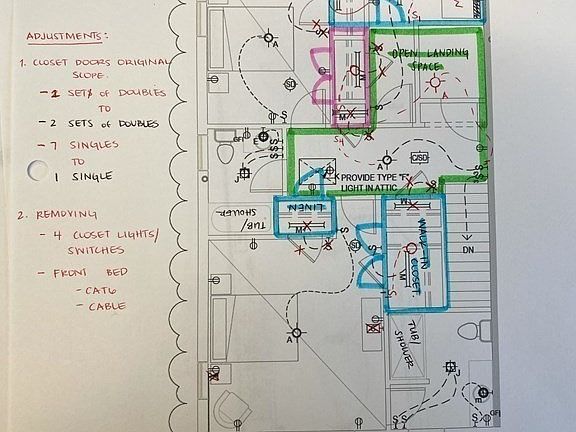 ADJUSTMENTS:
1. CLOSET DOORS ORIGINAL
SCOPE.
- 1 SETS of DOUBLES
TO
- 2 SETS of DOUBLES
- 7 SINGLES
TO
1 SINGLE
2. REMOVING
- 4 CLOSET LIGHTS/
SWITCHES
- FRONT BED
- CAT6
- CABLE
OPEN LANDING
SPACE
A
A
SD
M
S4
GFI
E
J
A
C/SD
PROVIDE TYPE "F"
LIGHT IN ATTIC
LINEN
TUB/
SHOWER
M
SD
M
WALK IN
CLOSET
M
DN
A
TUB/
SHOWER
J
E
GFI